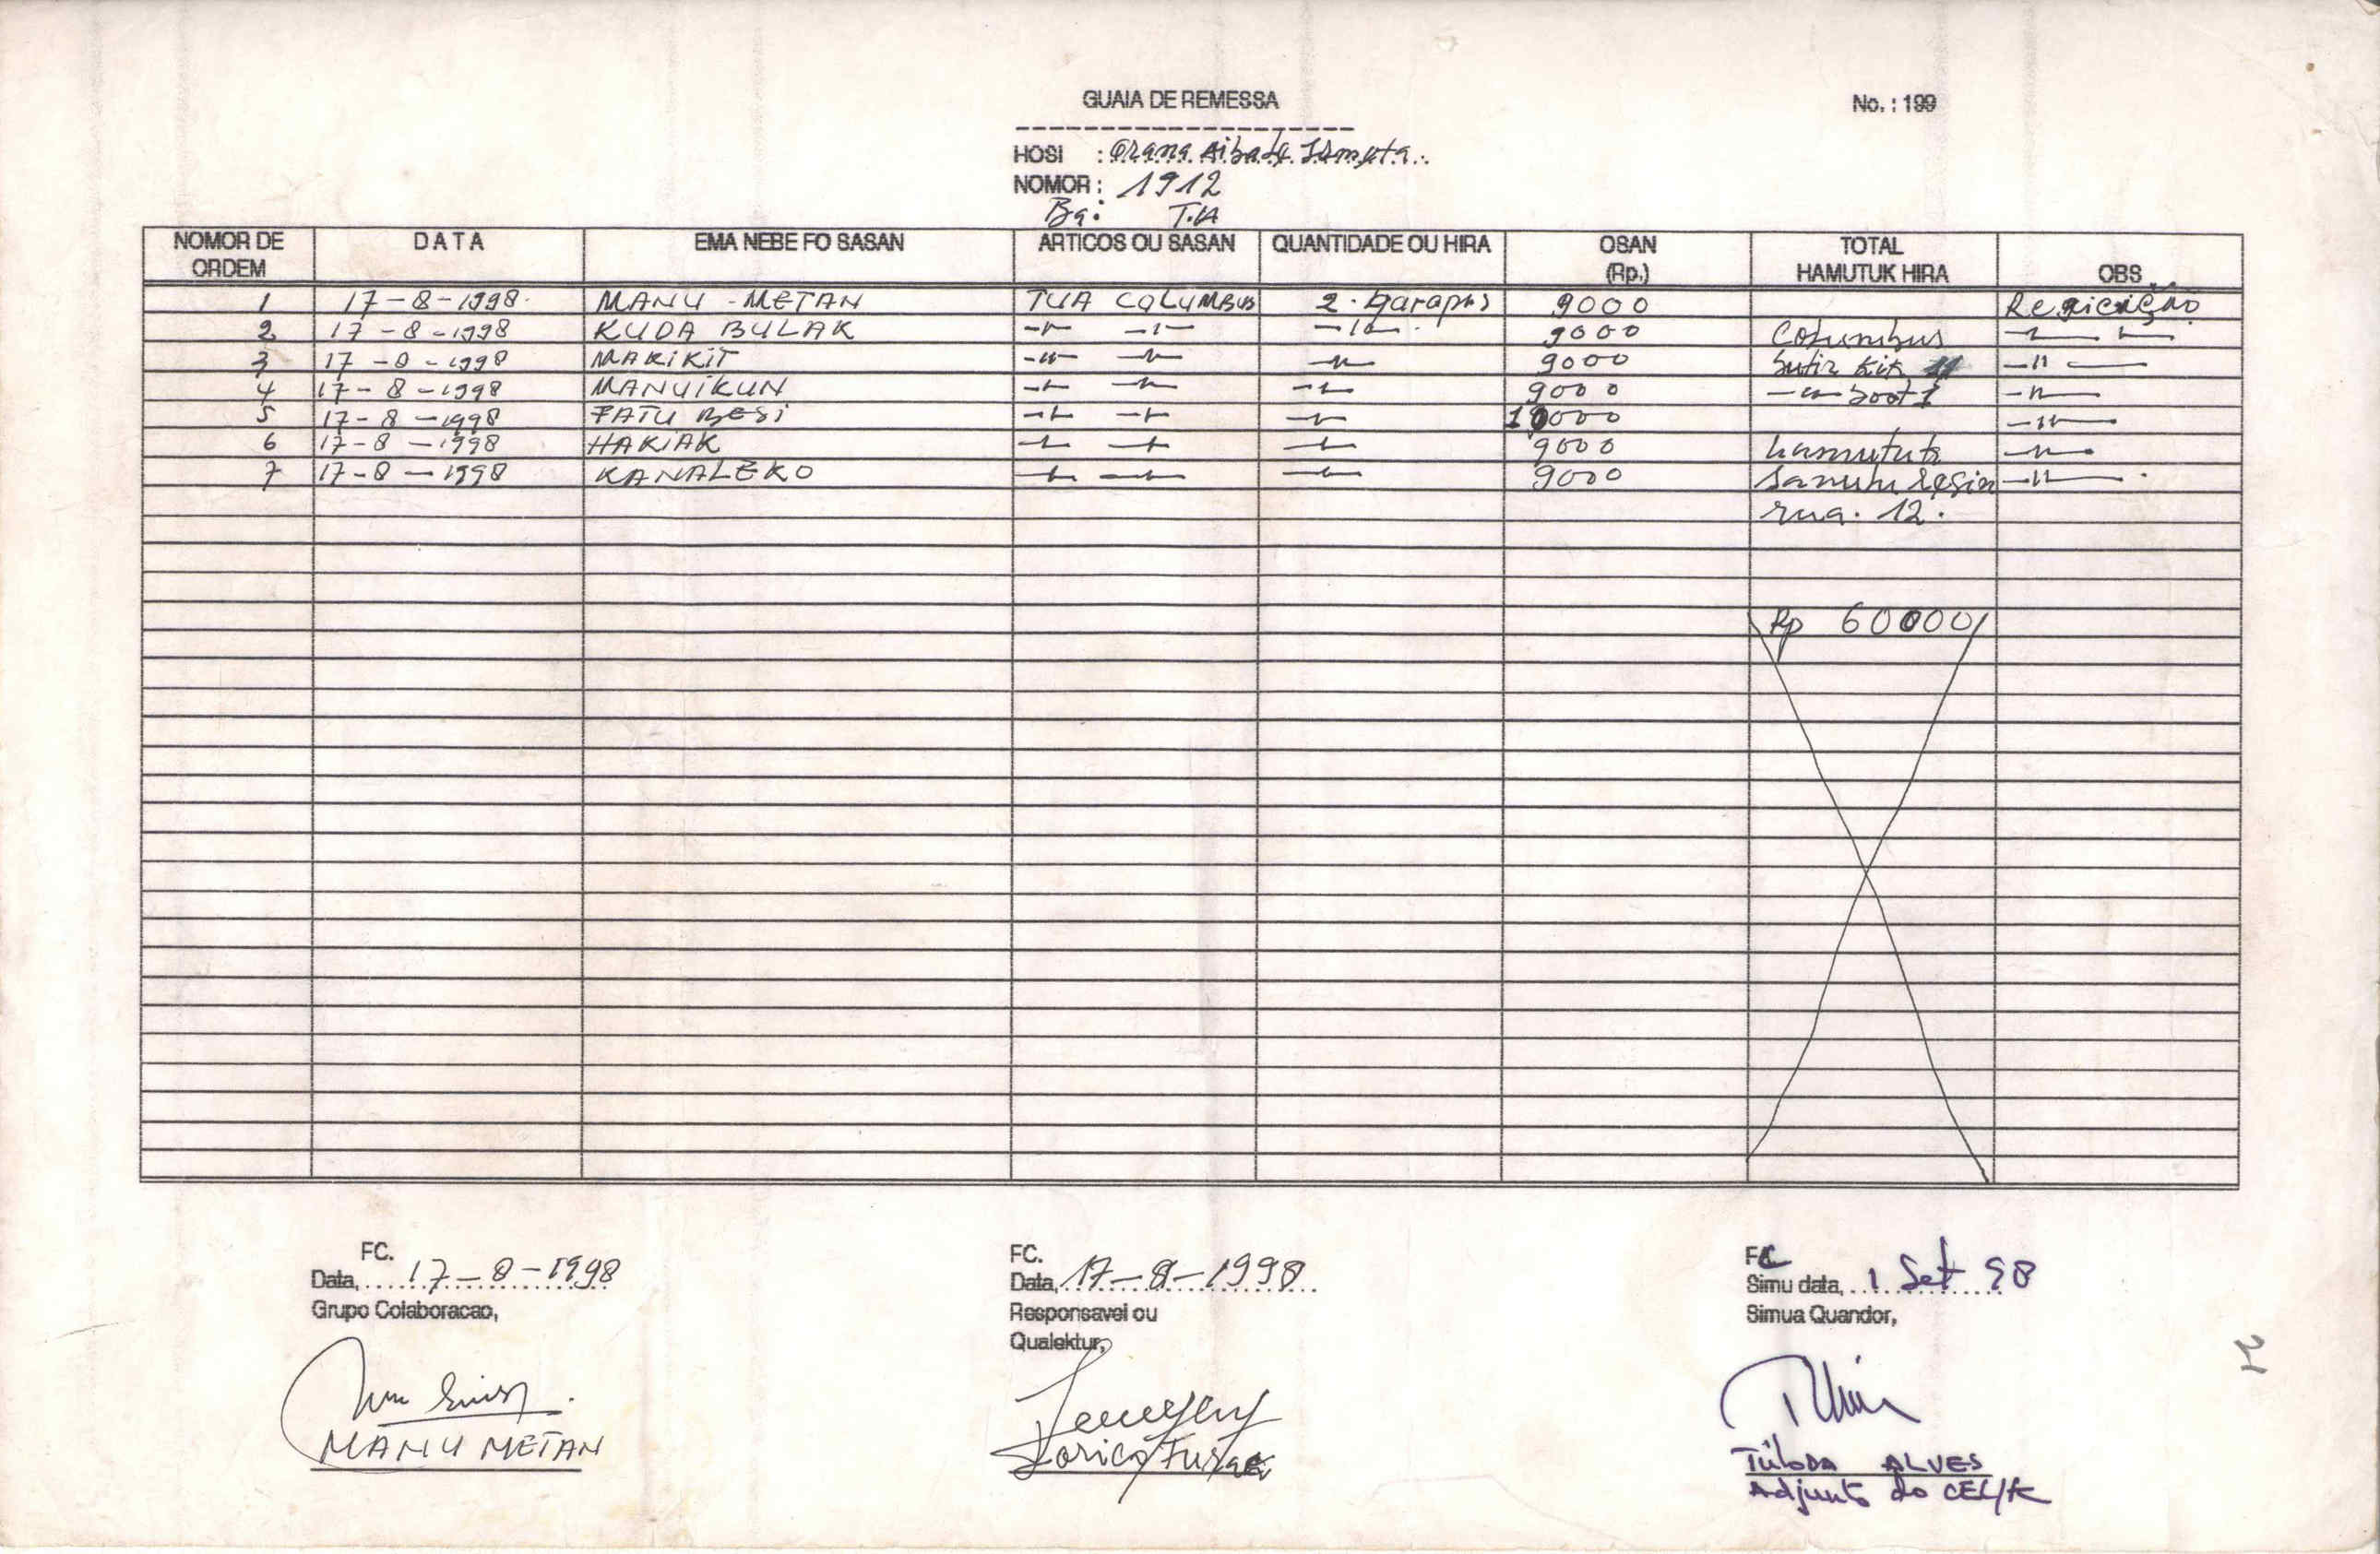 GUAIA DE REMESSA
No. : 199
HOSI :
NOMOR : 1912
Ba: T.A
NOMOR DE ORDEM DATA EMA NEBE FO SASAN ARTICOS OU SASAN QUANTIDADE OU HIRA OSAN (Rp.) TOTAL HAMUTUK HIRA OBS
1 17-8-1998 MANU-METAN TUA COLUMBUS 2. garapas 9000
2 17-8-1998 KUDA BULAK -"- -"- -"- 9000 Columbus -"- -"-
3 17-8-1998 MAKIKIT -"- -"- -"- 9000 kik 11 -"-
4 17-8-1998 MANUIKUN -"- -"- -"- 9000 -"- boot 1 -"-
5 17-8-1998 FATU BESI -"- -"- -"- 10000 -"-
6 17-8-1998 HAKIAK -"- -"- -"- 9000 hamutuk -"-
7 17-8-1998 KANALEKO -"- -"- -"- 9000 Sanulu Resin -"-
rua. 12.
Rp 60000
FC.
Data, 17-8-1998
Grupo Colaboracao,
MANU METAN
FC.
Data, 17-8-1998
Responsavel ou
Qualektur,
FC
Simu data, 1 Set 98
Simua Quandor,
ALVES
Adjunto do